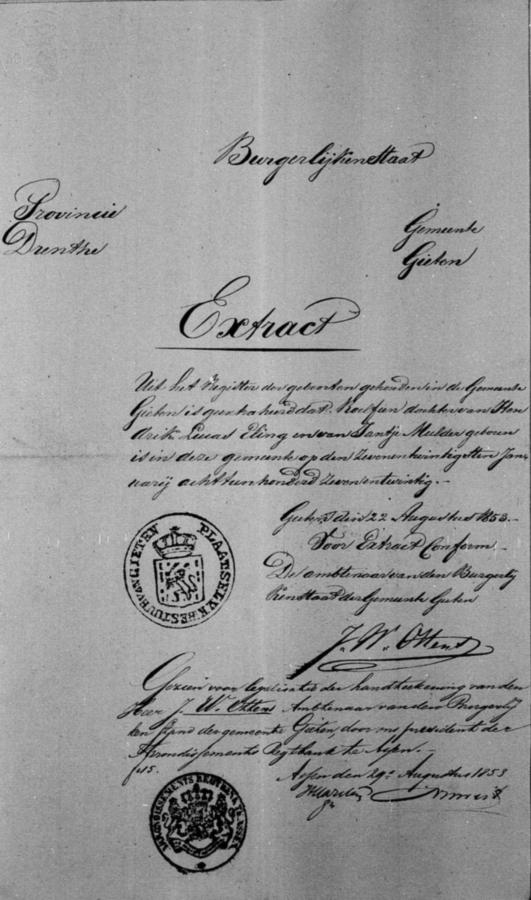 Burgerlijken Staat
Provincie
Drenthe
Gemeente
Gieten
Extract
Uit het Register der geboorten gehouden in de Gemeente
Gieten is geextraheerd dat Roelfien dochter van Hen
drik Lucas Eling en van Jantje Mulder geboren
is in deze gemeente op den Zevenentwintigsten Jan,
uarij achttienhonderd Zevenentwintig.-
Gieten den 22 Augustus 1853.-
Voor Extract Conform -
De ambtenaar van den Burgerlij
ken Staat der Gemeente Gieten
PLAATSELYK BESTUUR VAN GIETEN
J. W. Ottens
Gezien voor legalisatie der handteekening van den
Heer J. W. Ottens Ambtenaar van den Burgerlij
ken der gemeente Gieten, door ons president der
Arrondissements Regtbank te Assen.-
Assen den 29 Augustus 1853
ARRONDISSEMENTS REGTBANK TE ASSEN